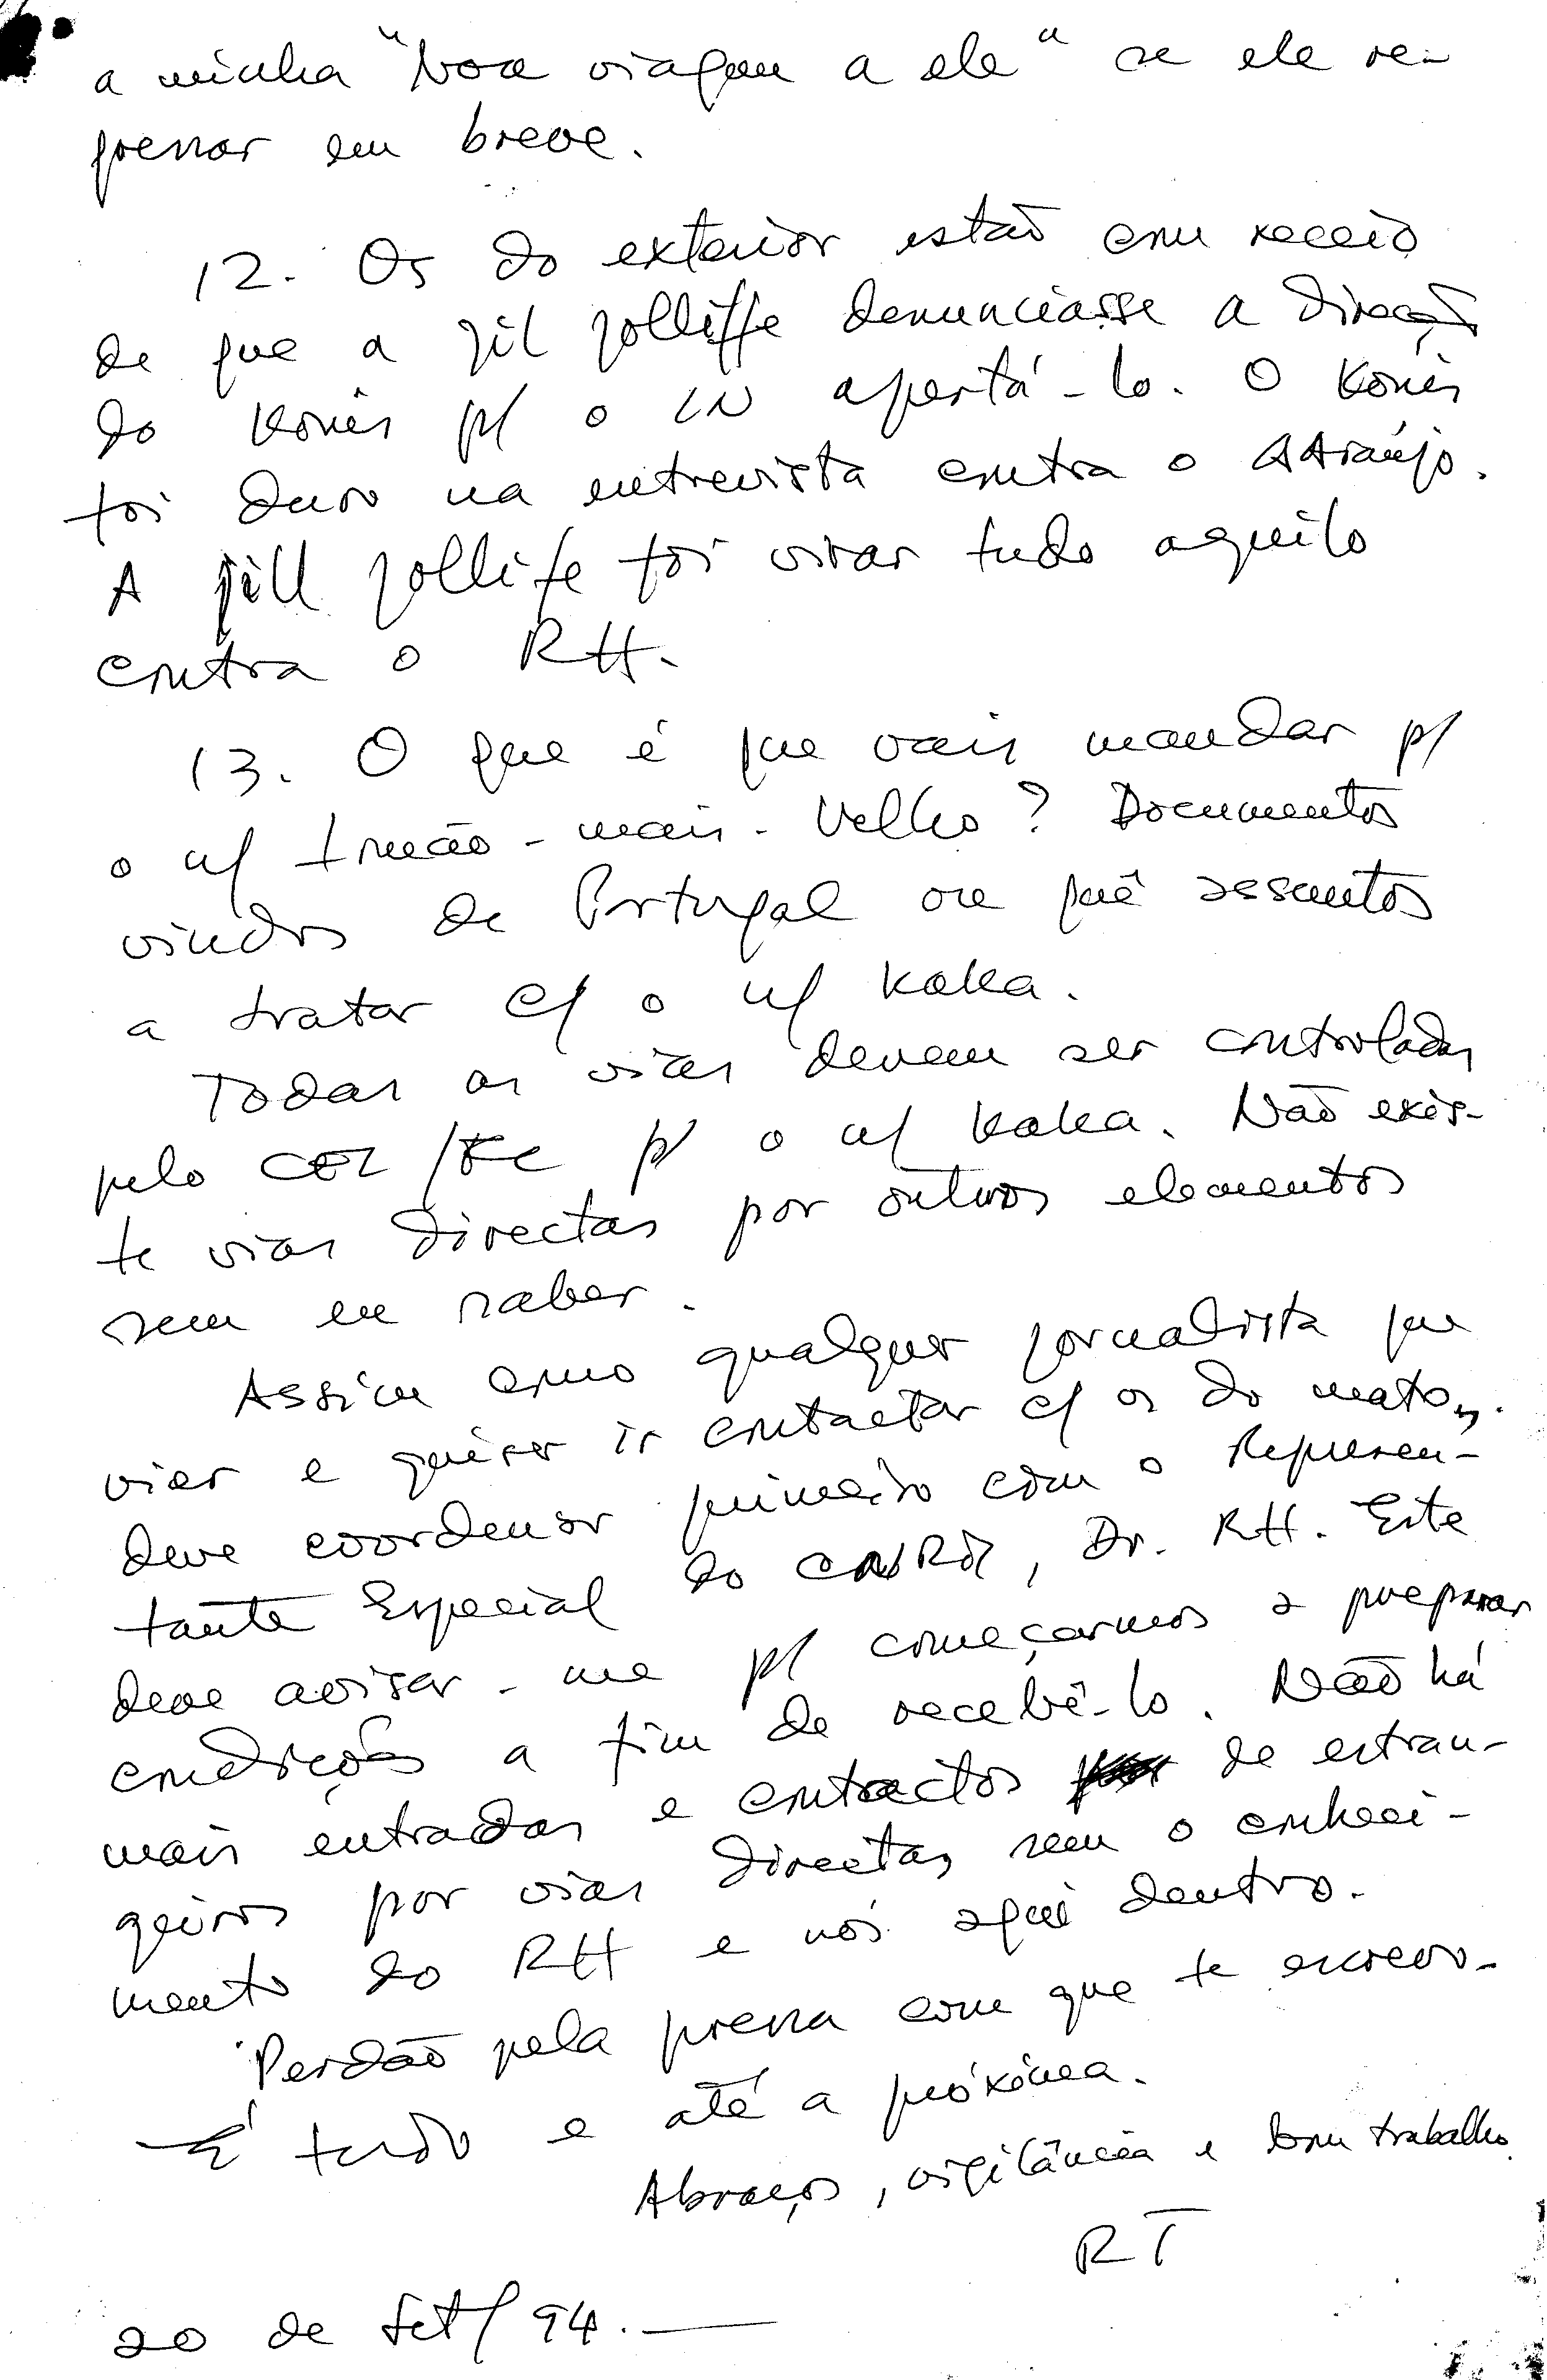 a minha "boa viagem a ele" se ele re-
gressar em breve.
12. Os do exterior estão com receio
de que a Jil Jolliffe denunciasse a direcção
do Konis p/ o IN apertá-lo. O Konis
foi duro na entrevista contra o AAraújo.
A Jill Jollife foi virar tudo aquilo
contra o RH.
13. O que é que vais mandar p/
o n/ Irmão-mais-Velho? Documentos
vindos de Portugal ou quê assuntos
a tratar c/ o n/ Kaka.
Todas as vias devem ser controladas
pelo CEL/FC p/ o n/ Kaka. Não exis-
te vias directas por outros elementos
sem eu saber.
Assim como qualquer jornalista que
vier e quiser ir contactar c/ os do mato,
deve coordenar primeiro com o Represen-
tante Especial do CNRM, Dr. RH. Este
deve avisar-me p/ começarmos a preparar
condições a fim de recebê-lo. Não há
mais entradas e contactos de estran-
geiros por vias directas, sem o conheci-
mento do RH e nós aqui dentro.
Perdão pela pressa com que te escrevo.
É tudo e até a próxima.
Abraços, vigilância e bom trabalho.
RT
20 de Set/94.